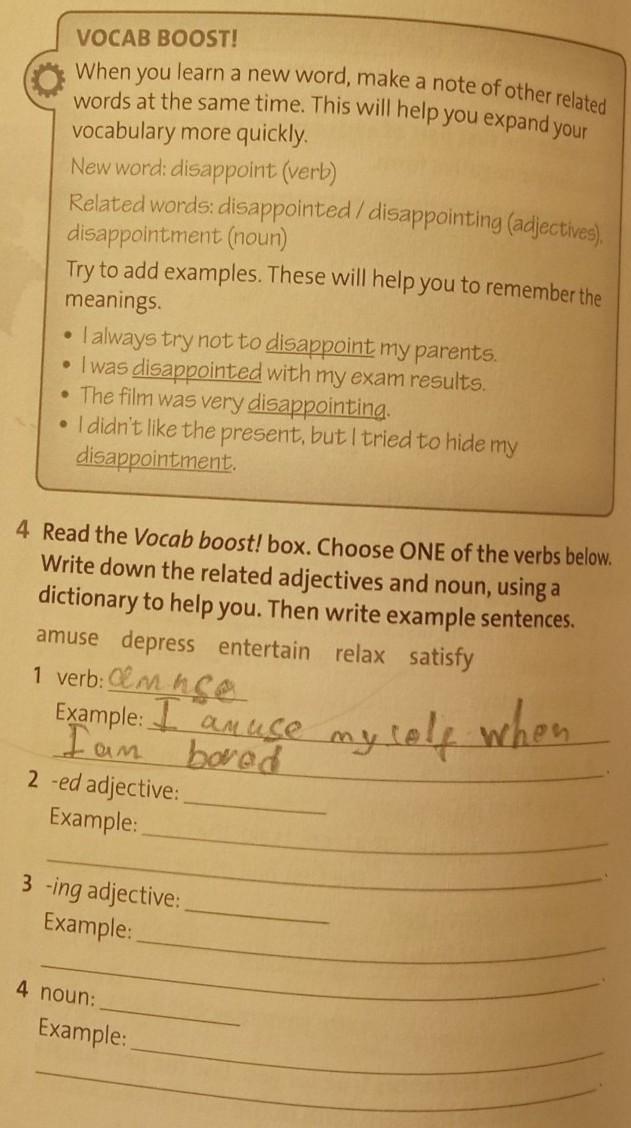 VOCAB BOOST!
When you learn a new word, make a note of other related
words at the same time. This will help you expand your
vocabulary more quickly.
New word: disappoint (verb)
Related words: disappointed / disappointing (adjectives),
disappointment (noun)
Try to add examples. These will help you to remember the
meanings.
• I always try not to disappoint my parents.
• I was disappointed with my exam results.
• The film was very disappointing.
• I didn't like the present, but I tried to hide my
disappointment.
4 Read the Vocab boost! box. Choose ONE of the verbs below.
Write down the related adjectives and noun, using a
dictionary to help you. Then write example sentences.
amuse depress entertain relax satisfy
1 verb: amuse
Example: I amuse my self when
I am bored.
2 -ed adjective:
Example:
3 -ing adjective:
Example:
4 noun:
Example: